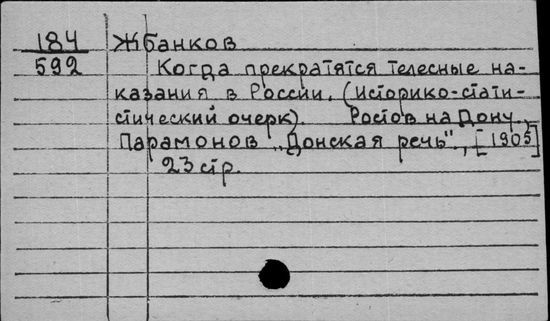 184 Жбанков
592 Когда прекратятся телесные на-
казания в России. (Историко-стати-
стический очерк). Ростов на Дону.,
Парамонов „Донская речь"., [1905]
23 стр.